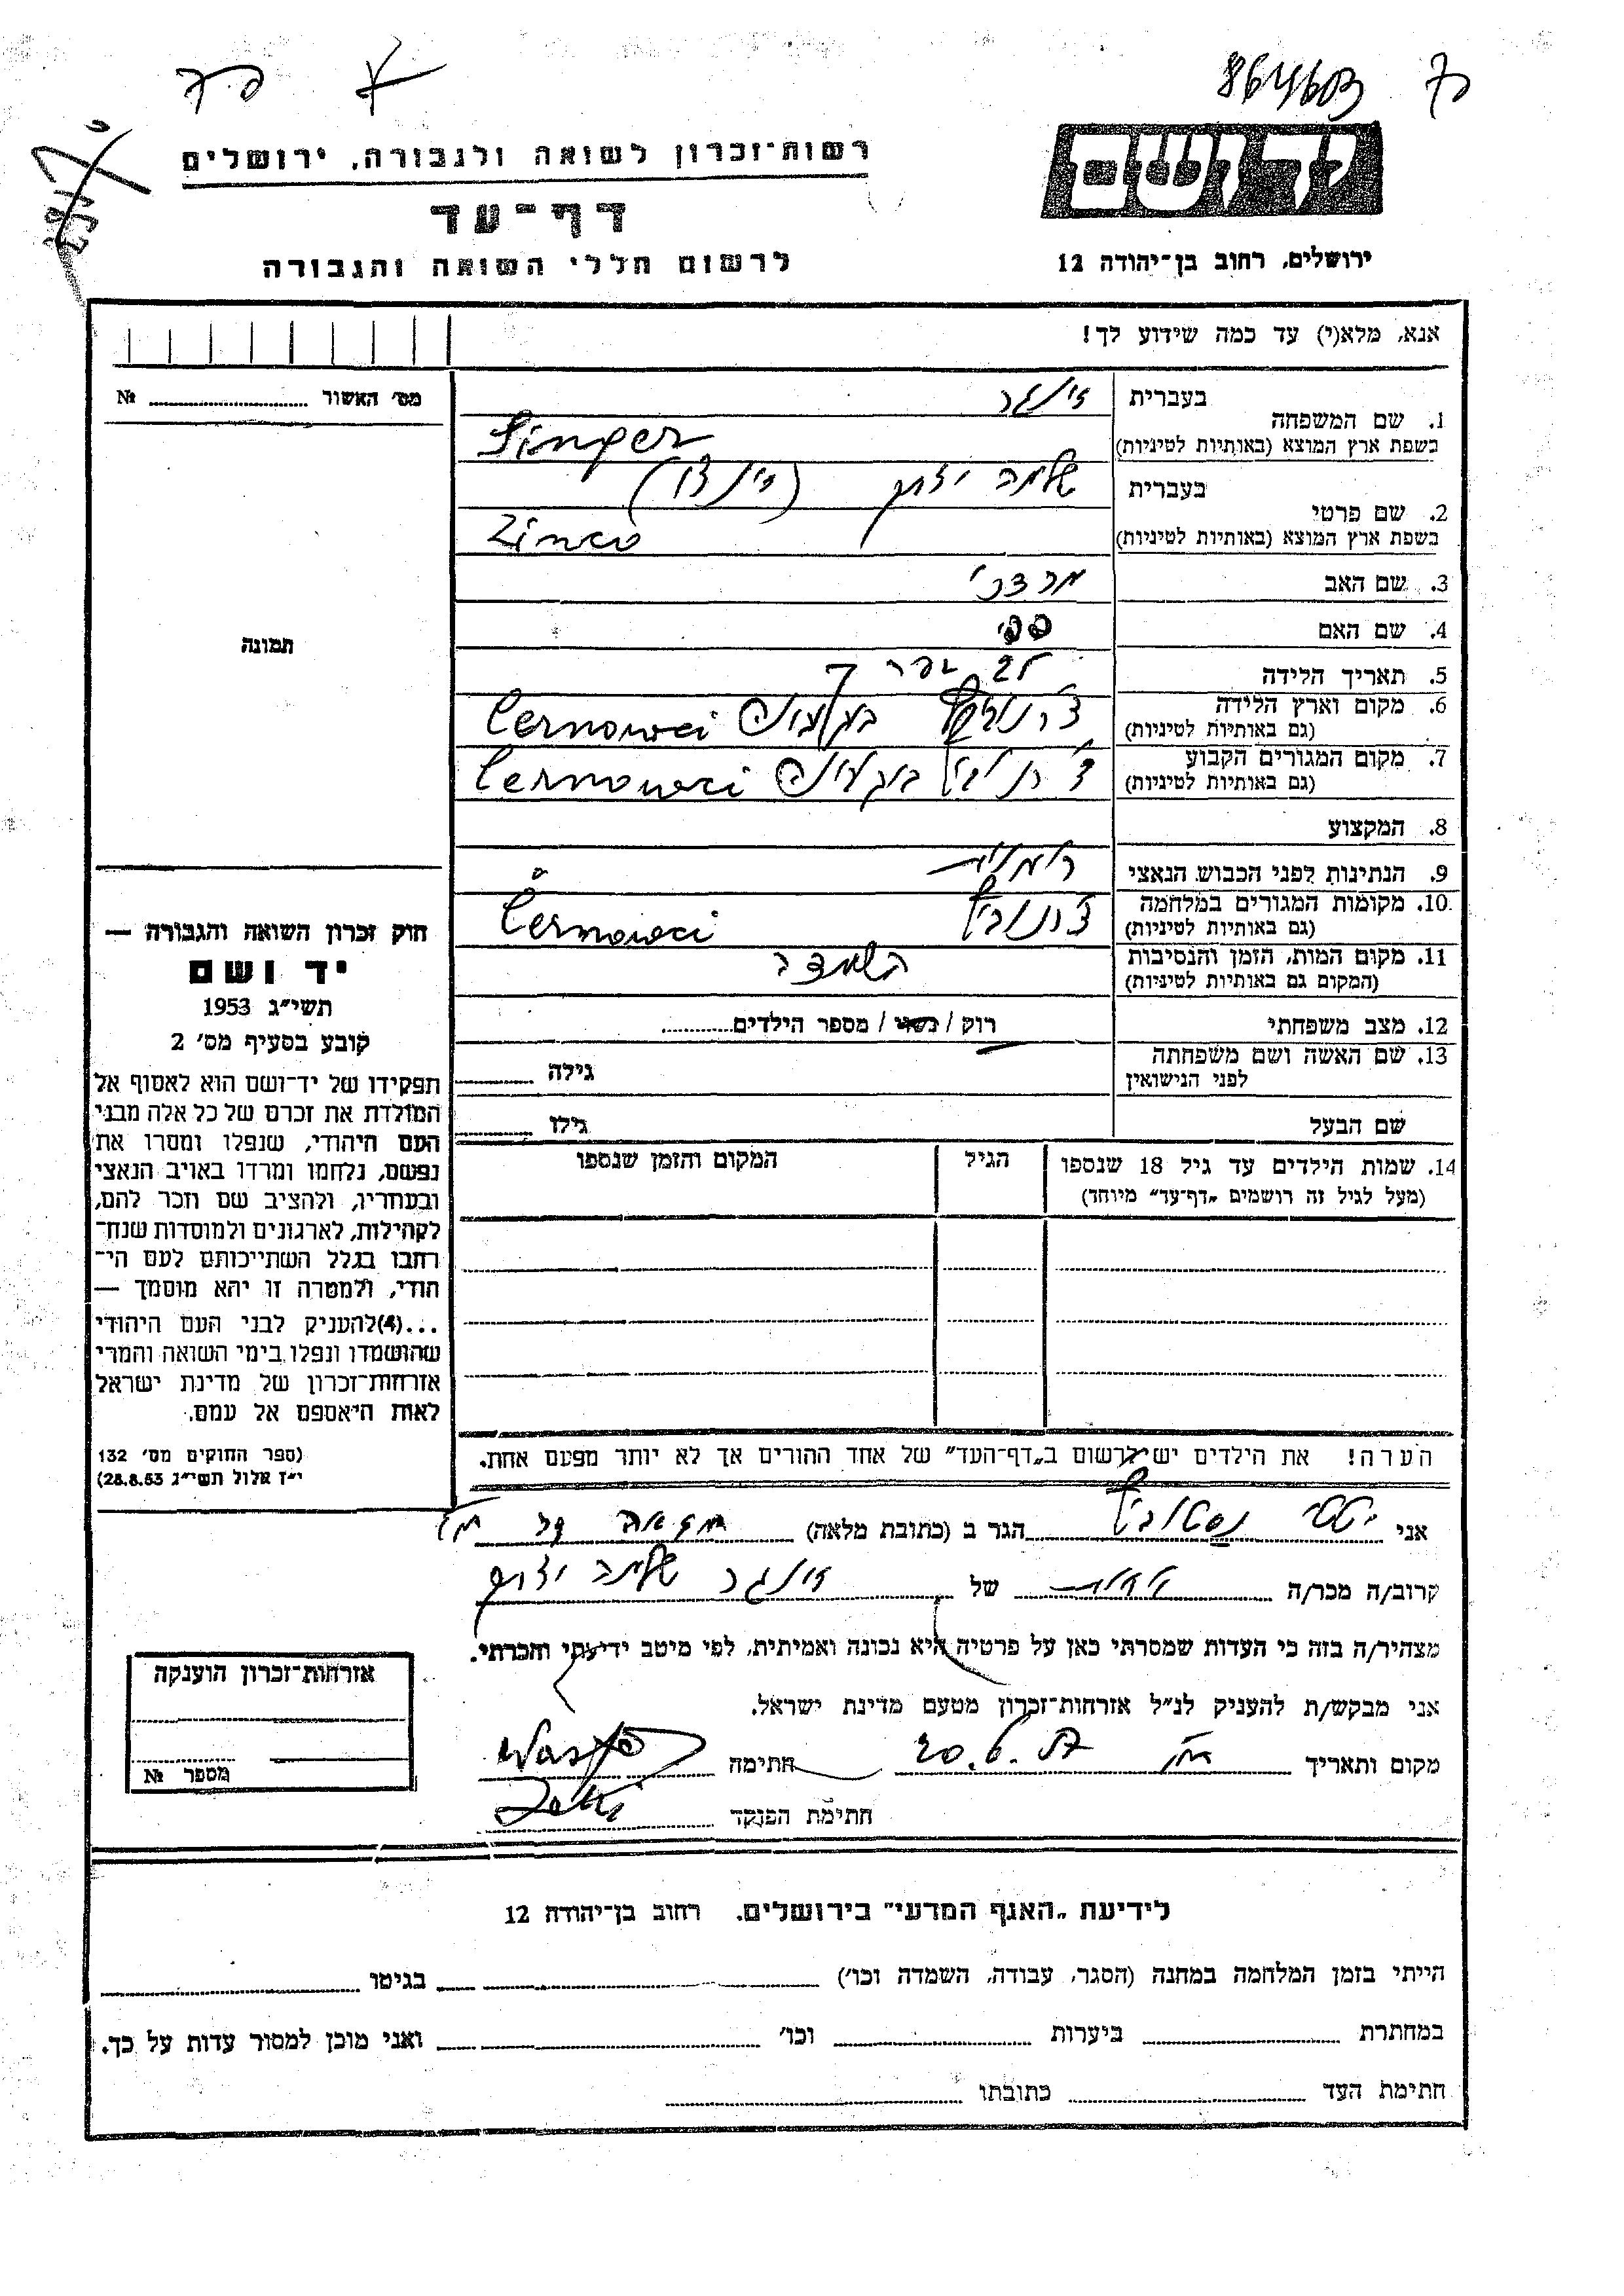 864603
יד ושם
רשות־זכרון לשואה ולגבורה, ירושלים
דף־עד
לרשום חללי השואה והגבורה
ירושלים, רחוב בן־יהודה 12
אנא, מלא(י) עד כמה שידוע לך!
מס׳ האשור № 
תמונה
1. שם המשפחה
בעברית זינגר
בשפת ארץ המוצא (באותיות לטיניות) Singer
2. שם פרטי
בעברית שלמה יצחק
בשפת ארץ המוצא (באותיות לטיניות) Zinco
3. שם האב מרדכי
4. שם האם
5. תאריך הלידה 25
6. מקום וארץ הלידה
(גם באותיות לטיניות) Cernowci
7. מקום המגורים הקבוע
(גם באותיות לטיניות) Cernowci
8. המקצוע
9. הנתינות לפני הכבוש הנאצי רומנית
10. מקומות המגורים במלחמה
(גם באותיות לטיניות) צ׳רנוביץ Cernowci
11. מקום המות, הזמן והנסיבות
(המקום גם באותיות לטיניות) השמדה
12. מצב משפחתי רוק / נשוי / מספר הילדים
13. שם האשה ושם משפחתה
לפני הנישואין
גילה
שם הבעל
גילו
14. שמות הילדים עד גיל 18 שנספו
(מעל לגיל זה רושמים „דף־עד״ מיוחד)
הגיל
המקום והזמן שנספו
חוק זכרון השואה והגבורה —
יד ושם
תשי״ג 1953
קובע בסעיף מס׳ 2
תפקידו של יד־ושם הוא לאסוף אל
המולדת את זכרם של כל אלה מבני
העם היהודי, שנפלו ומסרו את
נפשם, נלחמו ומרדו באויב הנאצי
ובעוזריו, ולהציב שם וזכר להם,
לקהילות, לארגונים ולמוסדות שנח־
רחבו בגלל השתייכותם לעם הי־
הודי, ולמטרה זו יהא מוסמך —
...(4)להעניק לבני העם היהודי
שהושמדו ונפלו בימי השואה והמרי
אזרחות־זכרון של מדינת ישראל
לאות היאספם אל עמם.
(ספר החוקים מס׳ 132
י״ז אלול תשי״ג 28.8.53)
הערה! את הילדים יש לרשום ב„דף־העד״ של אחד ההורים אך לא יותר מפעם אחת.
אני הגר ב (כתובת מלאה)
קרוב/ה מכר/ה של זינגר שלמה יצחק
מצהיר/ה בזה כי העדות שמסרתי כאן על פרטיה היא נכונה ואמיתית, לפי מיטב ידיעתי והכרתי.
אני מבקש/ת להעניק לנ״ל אזרחות־זכרון מטעם מדינת ישראל.
מקום ותאריך 20.6.57 חתימה
חתימת הפוקד
אזרחות־זכרון הוענקה
מספר №
לידיעת „האגף המדעי״ בירושלים. רחוב בן־יהודה 12
הייתי בזמן המלחמה במחנה (הסגר, עבודה, השמדה וכו׳) בגיטו
במחתרת ביערות וכו׳ ואני מוכן למסור עדות על כך.
חתימת העד כתובתו